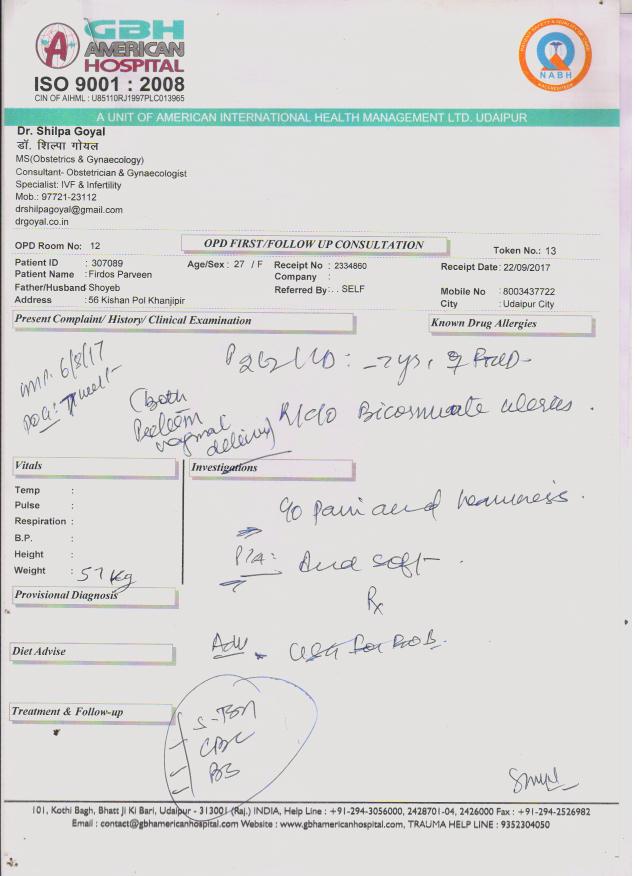 GBH
AMERICAN
HOSPITAL
ISO 9001 : 2008
CIN OF AIHML : U85110RJ1997PLC013965
NABH
A UNIT OF AMERICAN INTERNATIONAL HEALTH MANAGEMENT LTD. UDAIPUR
Dr. Shilpa Goyal
डॉ. शिल्पा गोयल
MS(Obstetrics & Gynaecology)
Consultant- Obstetrician & Gynaecologist
Specialist: IVF & Infertility
Mob.: 97721-23112
drshilpagoyal@gmail.com
drgoyal.co.in
OPD Room No: 12
OPD FIRST/FOLLOW UP CONSULTATION
Token No.: 13
Patient ID : 307089
Age/Sex : 27 / F
Receipt No : 2334860
Receipt Date: 22/09/2017
Patient Name : Firdos Parveen
Company :
Father/Husband Shoyeb
Referred By: . . SELF
Mobile No : 8003437722
Address : 56 Kishan Pol Khanjipir
City : Udaipur City
Present Complaint/ History/ Clinical Examination
Known Drug Allergies
LMP: 6/8/17
(both
vaginal
delivery)
K/c/o Bicornuate uterus.
Vitals
Investigations
Temp :
Pulse :
Respiration :
B.P. :
Height :
Weight : 57 kg
c/o pain and heaviness.
P/A: And soft
Rx
Provisional Diagnosis
Diet Advise
Adv
Treatment & Follow-up
S-TSH
CBC
BS
101, Kothi Bagh, Bhatt Ji Ki Bari, Udaipur - 313001 (Raj.) INDIA, Help Line : +91-294-3056000, 2428701-04, 2426000 Fax : +91-294-2526982
Email : contact@gbhamericanhospital.com Website : www.gbhamericanhospital.com, TRAUMA HELP LINE : 9352304050